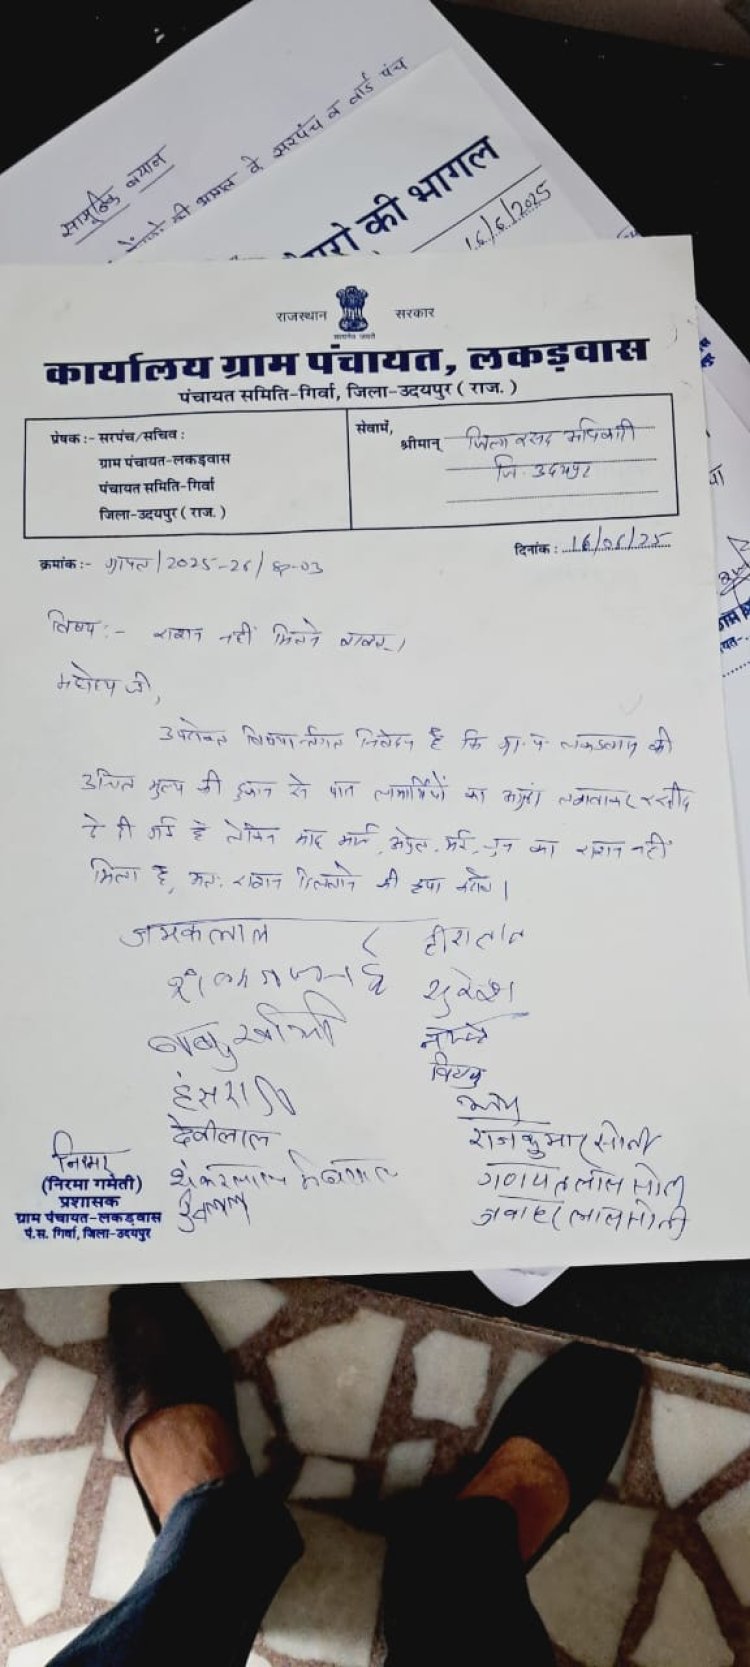 सामूहिक बयान
की भागल के सरपंच व वार्ड पंच
की भागल
16/6/2025
राजस्थान सरकार
सत्यमेव जयते
कार्यालय ग्राम पंचायत, लकड़वास
पंचायत समिति-गिर्वा, जिला-उदयपुर ( राज. )
प्रेषक :- सरपंच/सचिव :
ग्राम पंचायत-लकड़वास
पंचायत समिति-गिर्वा
जिला-उदयपुर ( राज. )
सेवामें,
श्रीमान् जिला रसद अधिकारी
जि. उदयपुर
क्रमांक :- ग्रापंल/2025-26/
दिनांक : 16/06/25
विषय :- राशन नहीं मिलने बाबत्।
महोदय जी,
उपरोक्त विषयान्तर्गत निवेदन है कि ग्रा. पं. लकडवास की
उचित मूल्य की दुकान से पात्र लाभार्थियों का अगुंठा लगवाकर रसीद
दे दी गई है लेकिन माह मार्च, अप्रेल, मई, जुन का राशन नहीं
मिला है, अतः राशन दिलवाने की कृपा करावे।
हीरालाल
सुरेश
हंसराज
देवीलाल
राजकुमार सोनी
गणपतलाल
जवाहरलाल सोनी
निरमा
(निरमा गमेती)
प्रशासक
ग्राम पंचायत-लकड़वास
पं.स. गिर्वा, जिला-उदयपुर